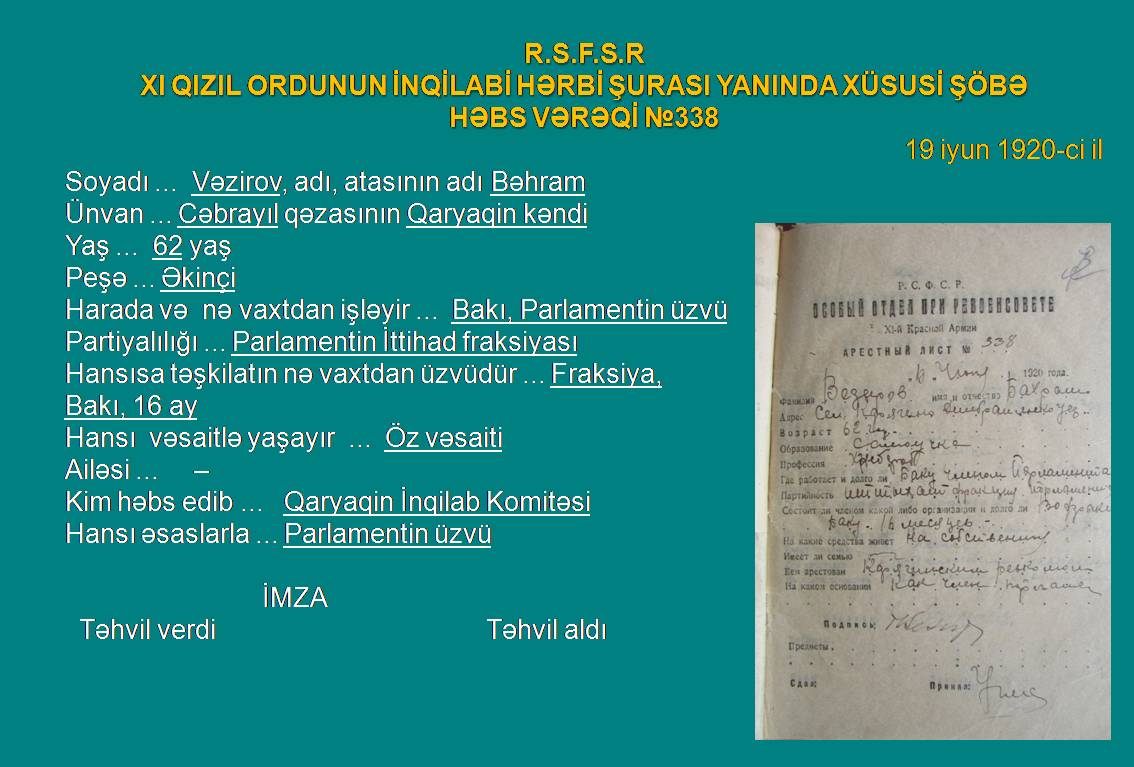 R.S.F.S.R
XI QIZIL ORDUNUN İNQİLABİ HƏRBİ ŞURASI YANINDA XÜSUSİ ŞÖBƏ
HƏBS VƏRƏQİ №338
19 iyun 1920-ci il
Soyadı ... Vəzirov, adı, atasının adı Bəhram
Ünvan ... Cəbrayıl qəzasının Qaryaqin kəndi
Yaş ... 62 yaş
Peşə ... Əkinçi
Harada və nə vaxtdan işləyir ... Bakı, Parlamentin üzvü
Partiyalılığı ... Parlamentin İttihad fraksiyası
Hansısa təşkilatın nə vaxtdan üzvüdür ... Fraksiya,
Bakı, 16 ay
Hansı vəsaitlə yaşayır ... Öz vəsaiti
Ailəsi ... –
Kim həbs edib ... Qaryaqin İnqilab Komitəsi
Hansı əsaslarla ... Parlamentin üzvü
İMZA
Təhvil verdi Təhvil aldı
Р. С. Ф. С. Р.
ОСОБЫЙ ОТДЕЛ ПРИ РЕВВОЕНСОВЕТЕ
XI-й Красной Армии
АРЕСТНЫЙ ЛИСТ № 338
1920 года.
Фамилия Везиров имя и отчество Бахрам
Адрес Сел.
Возраст 62
Образование
Профессия Хлебороб
Где работает и долго ли Баку членом Парламента
Партийность
Состоит ли членом какой либо организации и долго ли
Баку. 16 месяцев
На какие средства живет На собственныя
Имеет ли семью
Кем арестован Карягинским ревкомом
На каком основании Как член
Подпись:
Предметы.
Сдал: Принял: